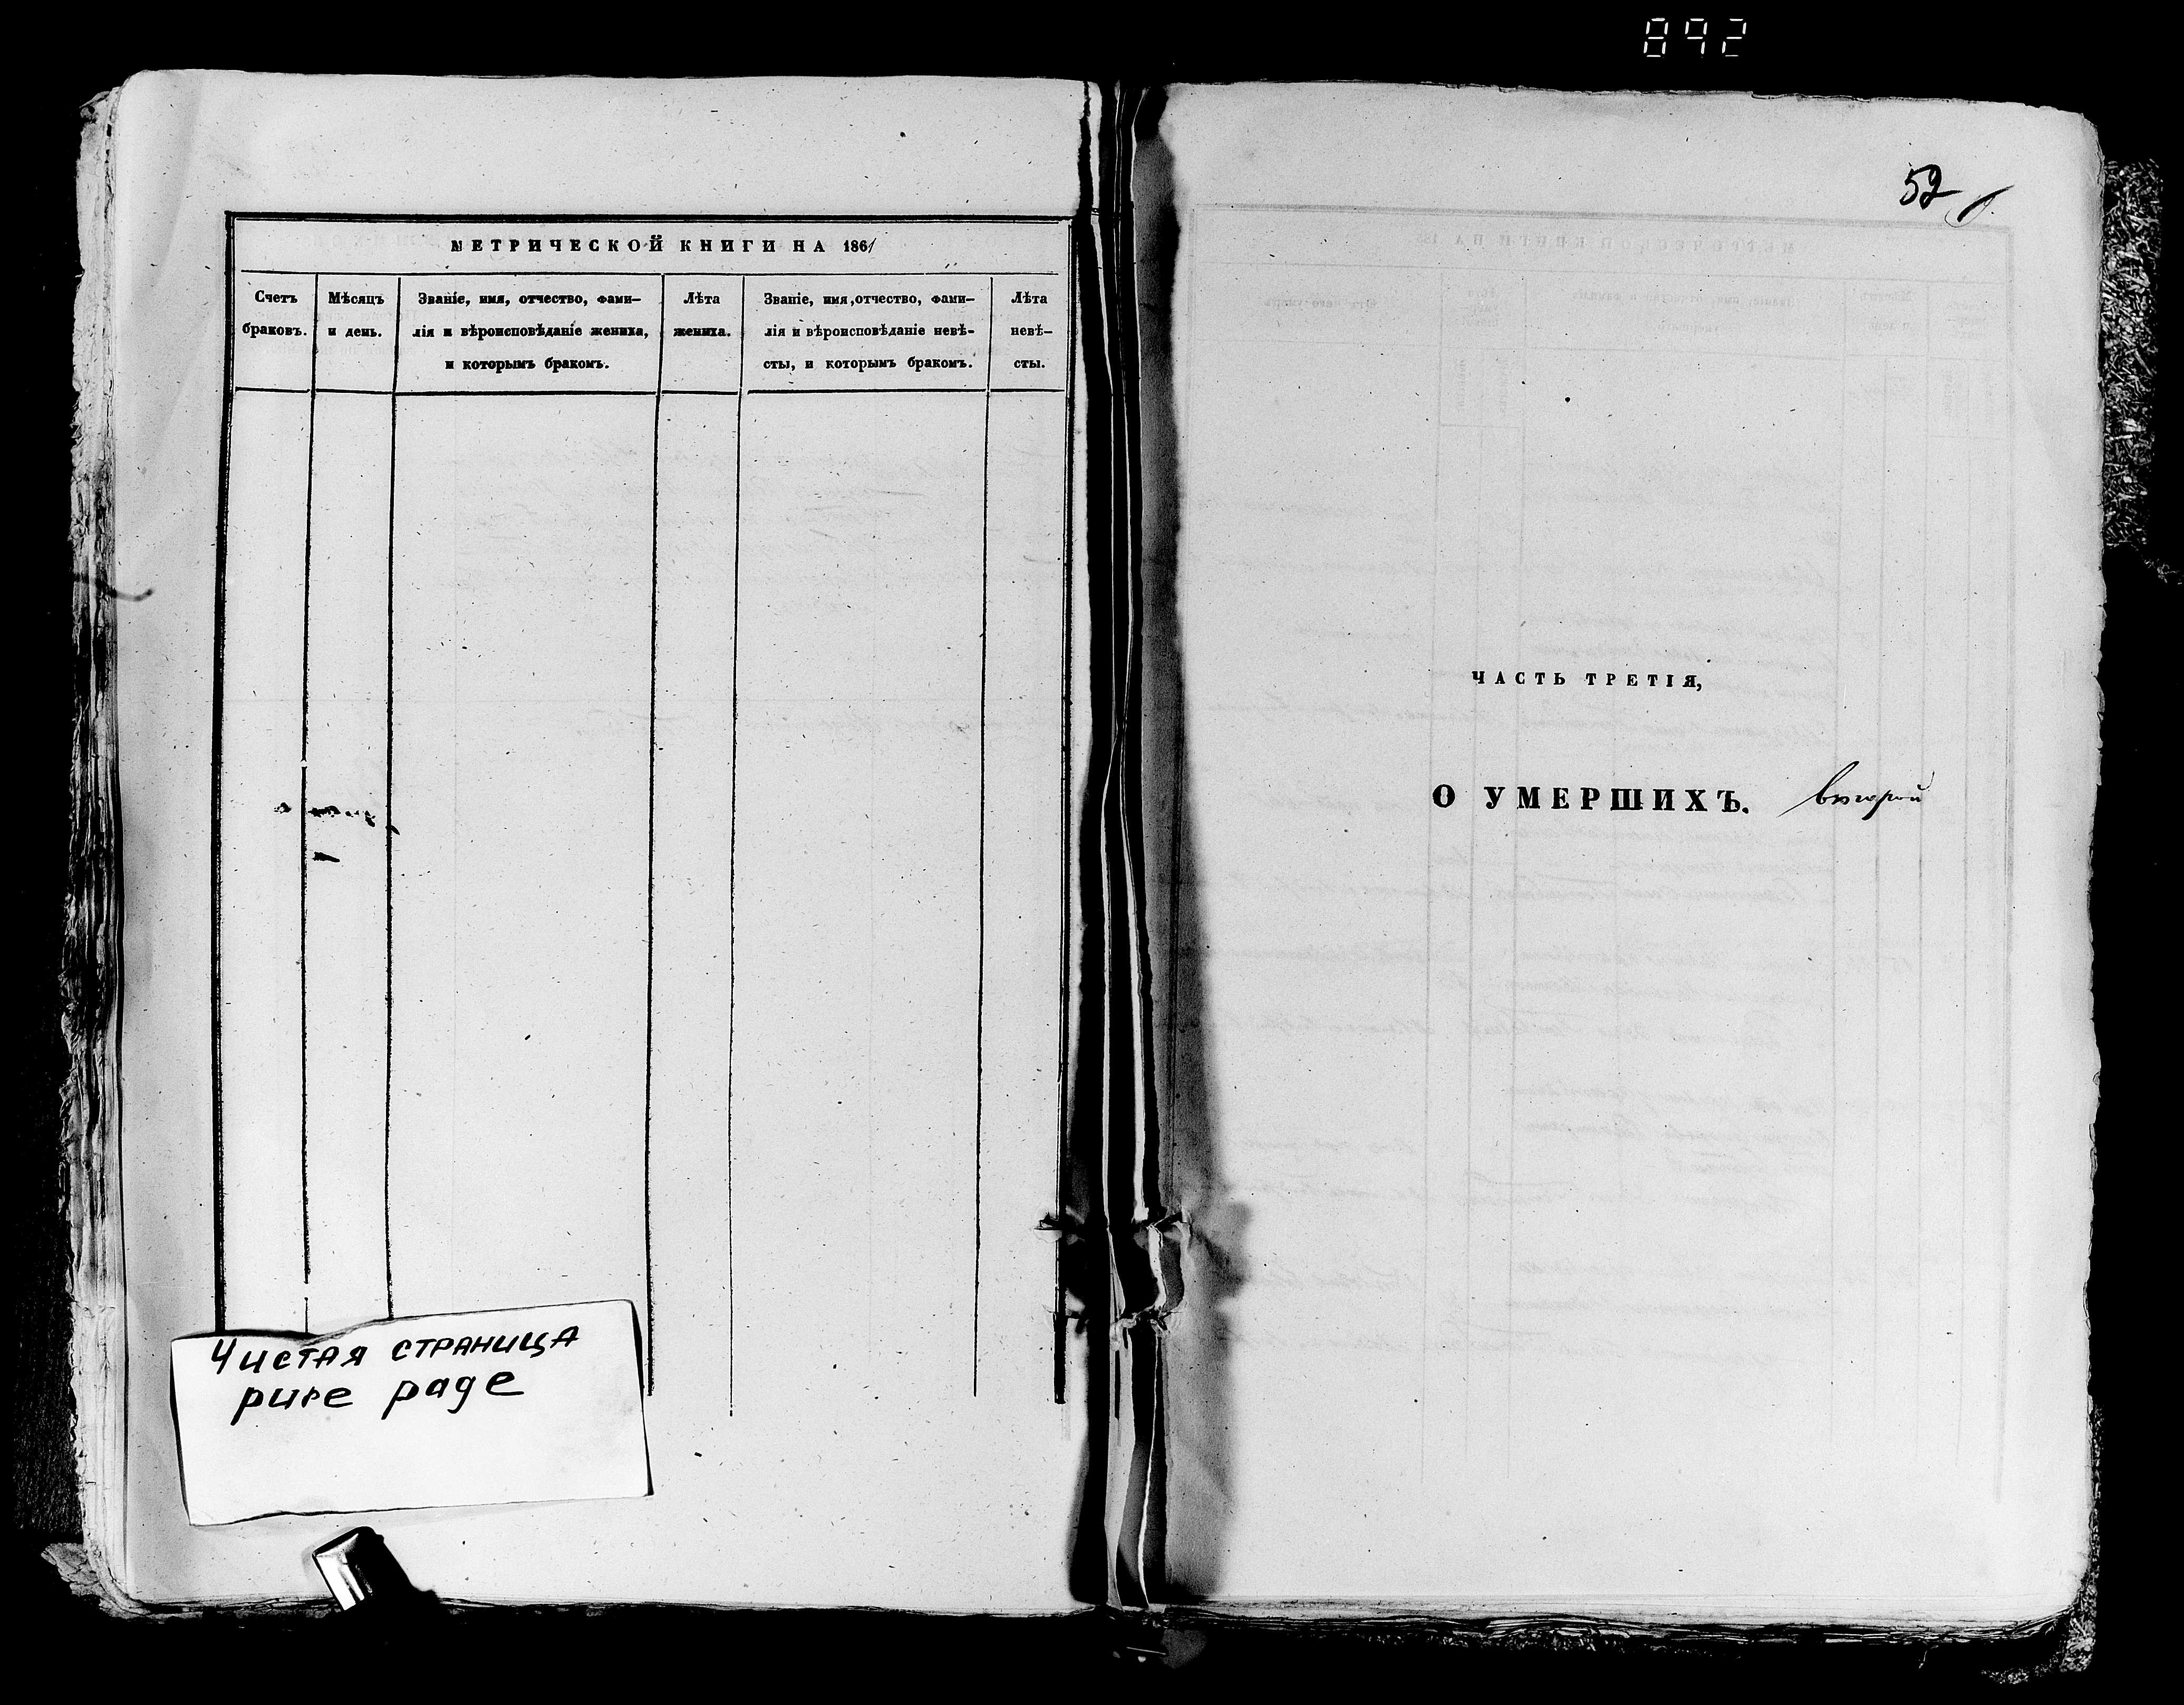 892
МЕТРИЧЕСКОЙ КНИГИ НА 1861
Счетъ браковъ.
Мѣсяцъ и день.
Званіе, имя, отчество, фами-
лія и вѣроисповѣданіе жениха,
и которымъ бракомъ.
Лѣта
жениха.
Званіе, имя, отчество, фами-
лія и вѣроисповѣданіе невѣ-
сты, и которымъ бракомъ.
Лѣта
невѣ-
сты.
Чистая страница
pure page
52
ЧАСТЬ ТРЕТІЯ,
О УМЕРШИХЪ. второй